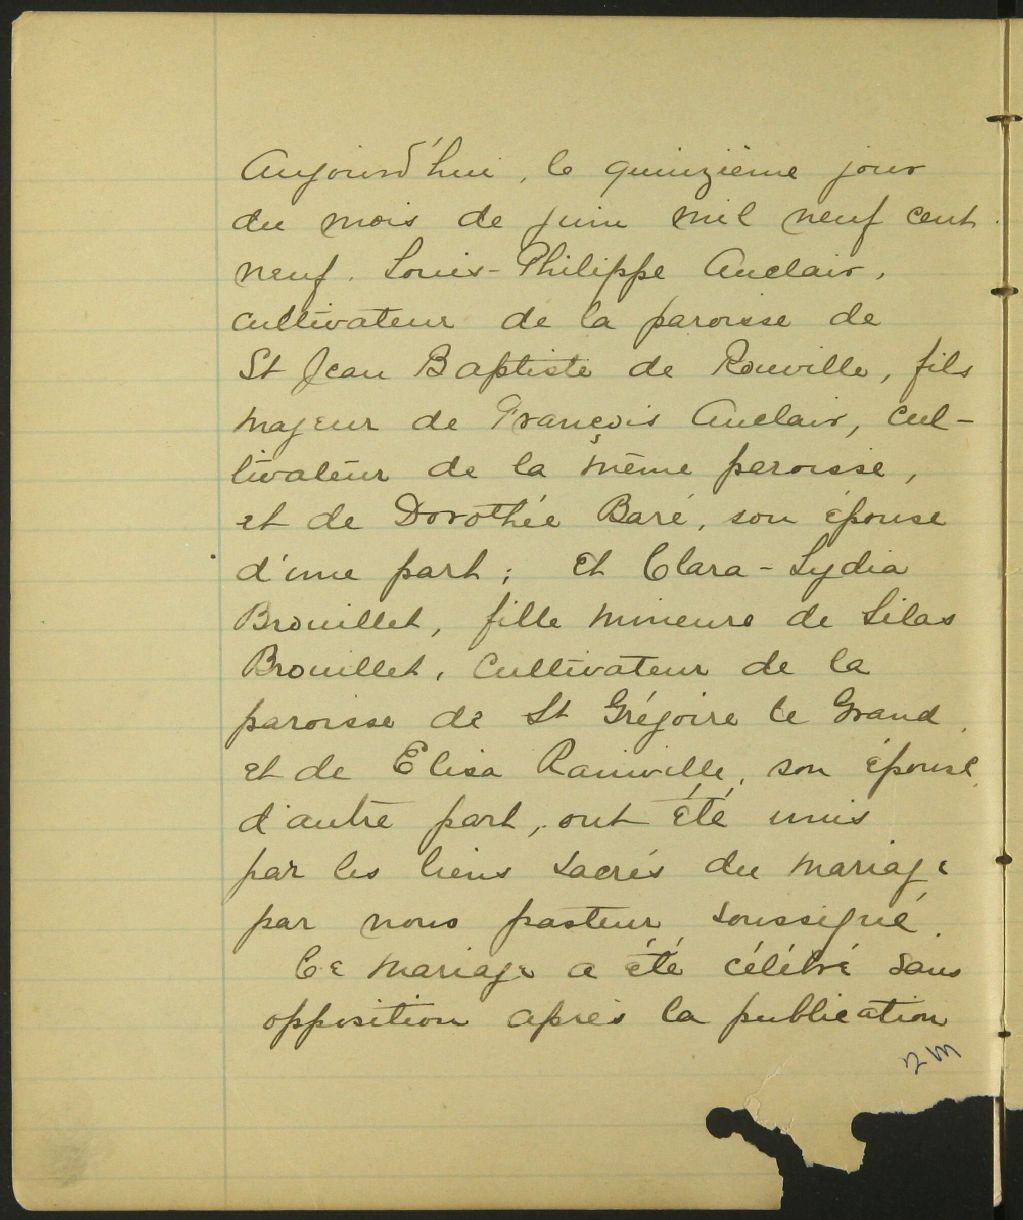 Aujourd'hui, le quinzième jour
du mois de juin mil neuf cent
neuf. Louis-Philippe Auclair,
cultivateur de la paroisse de
St Jean Baptiste de Rouville, fils
majeur de François Auclair, cul-
tivateur de la même paroisse,
et de Dorothée Baré, son épouse
d'une part; et Clara-Lydia
Brouillet, fille mineure de Silas
Brouillet, cultivateur de la
paroisse de St Grégoire le Grand
et de Elisa Rainville, son épouse,
d'autre part, ont été unis
par les liens sacrés du mariage
par nous pasteur soussigné.
Ce mariage a été célébré sans
opposition après la publication
2M